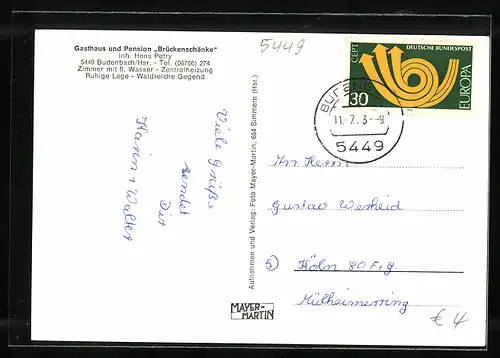 Gasthaus und Pension „Brückenschänke"
Inh. Hans Petry
5449 Budenbach/Hsr. - Tel. (06766) 274
Zimmer mit fl. Wasser - Zentralheizung
Ruhige Lage - Waldreiche Gegend
5449
CEPT
DEUTSCHE BUNDESPOST
EUROPA
30
11.-7.73-9
5449
Viele Grüße
sendet
Dir
Karin + Walter
Aufnahmen und Verlag: Foto Mayer-Martin, 654 Simmern (Hsr.)
MAYER-
MARTIN
An Herrn
Gustav
5) Köln 80
Mülheimerring
€ 4